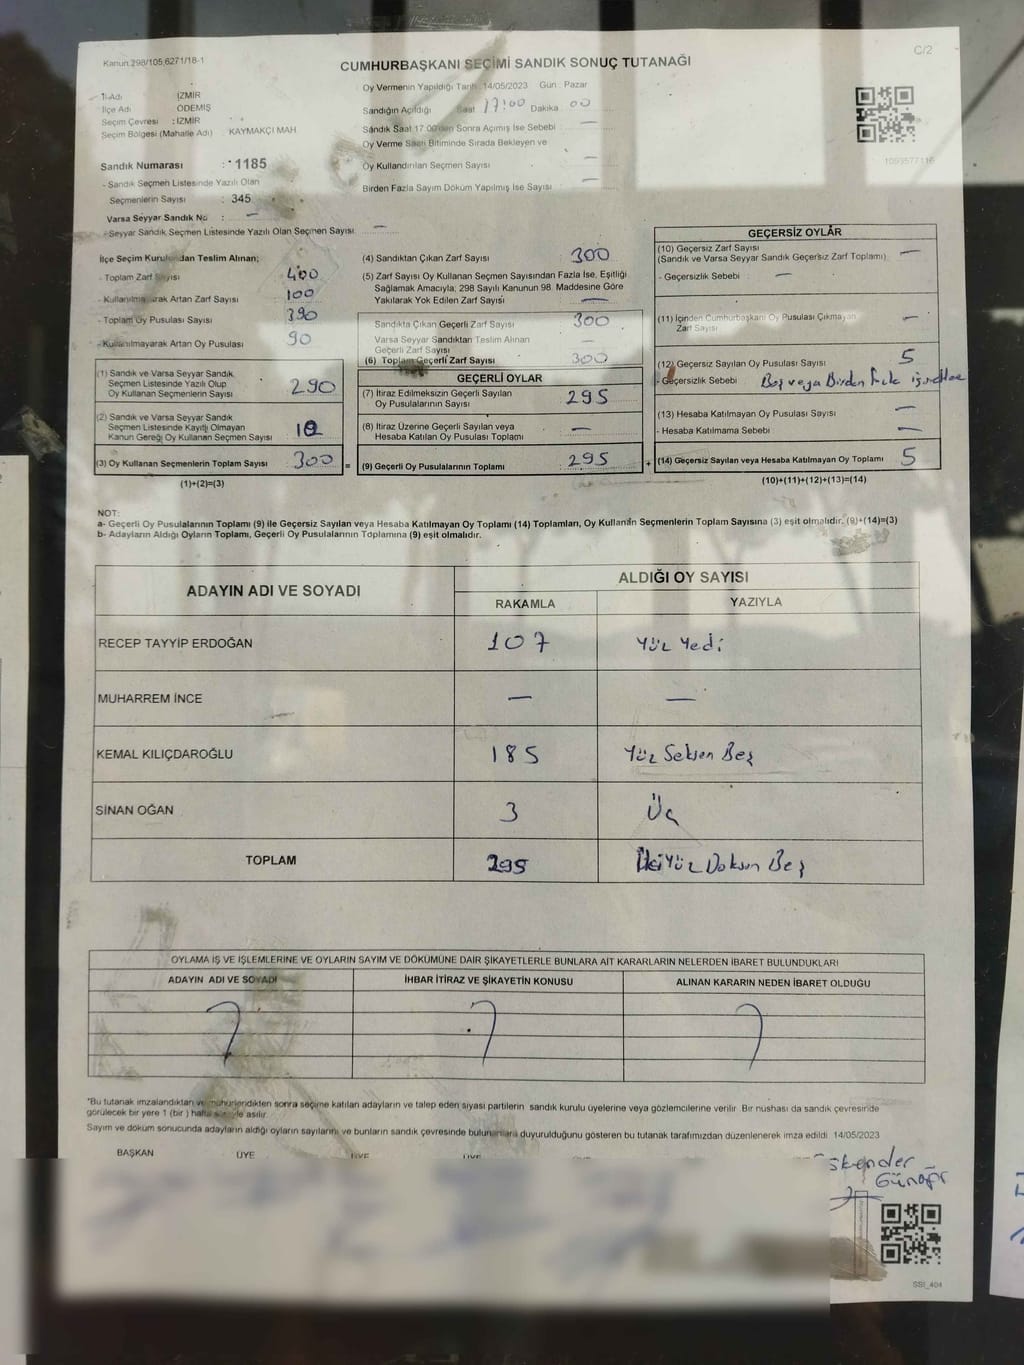 C/2
Kanun 298/105,6271/18-1
CUMHURBAŞKANI SEÇİMİ SANDIK SONUÇ TUTANAĞI
İl Adı İZMİR
İlçe Adı ÖDEMİŞ
Seçim Çevresi : İZMİR
Seçim Bölgesi (Mahalle Adı) KAYMAKÇI MAH
Sandık Numarası : 1185
- Sandık Seçmen Listesinde Yazılı Olan
Seçmenlerin Sayısı : 345
Varsa Seyyar Sandık No : —
- Seyyar Sandık Seçmen Listesinde Yazılı Olan Seçmen Sayısı —
Oy Vermenin Yapıldığı Tarih 14/05/2023 Gün Pazar
Sandığın Açıldığı Saat 17:00 Dakika 00
Sandık Saat 17.00'den Sonra Açımış İse Sebebi —
Oy Verme Saati Bitiminde Sırada Bekleyen ve
Oy Kullandırılan Seçmen Sayısı —
Birden Fazla Sayım Döküm Yapılmış İse Sayısı —
1099577116
İlçe Seçim Kurulundan Teslim Alınan;
- Toplam Zarf Sayısı 400
- Kullanılmayarak Artan Zarf Sayısı 100
- Toplam Oy Pusulası Sayısı 390
- Kullanılmayarak Artan Oy Pusulası 90
(1) Sandık ve Varsa Seyyar Sandık
Seçmen Listesinde Yazılı Olup
Oy Kullanan Seçmenlerin Sayısı 290
(2) Sandık ve Varsa Seyyar Sandık
Seçmen Listesinde Kayıtlı Olmayan
Kanun Gereği Oy Kullanan Seçmen Sayısı 10
(3) Oy Kullanan Seçmenlerin Toplam Sayısı 300 =
(1)+(2)=(3)
(4) Sandıktan Çıkan Zarf Sayısı 300
(5) Zarf Sayısı Oy Kullanan Seçmen Sayısından Fazla İse, Eşitliği
Sağlamak Amacıyla; 298 Sayılı Kanunun 98. Maddesine Göre
Yakılarak Yok Edilen Zarf Sayısı —
Sandıkta Çıkan Geçerli Zarf Sayısı 300
Varsa Seyyar Sandıktan Teslim Alınan
Geçerli Zarf Sayısı —
(6) Toplam Geçerli Zarf Sayısı 300
GEÇERLİ OYLAR
(7) İtiraz Edilmeksizin Geçerli Sayılan
Oy Pusulalarının Sayısı 295
(8) İtiraz Üzerine Geçerli Sayılan veya
Hesaba Katılan Oy Pusulası Toplamı —
(9) Geçerli Oy Pusulalarının Toplamı 295 +
GEÇERSİZ OYLAR
(10) Geçersiz Zarf Sayısı
(Sandık ve Varsa Seyyar Sandık Geçersiz Zarf Toplamı) —
- Geçersizlik Sebebi : —
(11) İçinden Cumhurbaşkanı Oy Pusulası Çıkmayan
Zarf Sayısı —
(12) Geçersiz Sayılan Oy Pusulası Sayısı 5
- Geçersizlik Sebebi : Boş veya Birden
(13) Hesaba Katılmayan Oy Pusulası Sayısı —
- Hesaba Katılmama Sebebi : —
(14) Geçersiz Sayılan veya Hesaba Katılmayan Oy Toplamı 5
(10)+(11)+(12)+(13)=(14)
NOT:
a- Geçerli Oy Pusulalarının Toplamı (9) ile Geçersiz Sayılan veya Hesaba Katılmayan Oy Toplamı (14) Toplamları, Oy Kullanan Seçmenlerin Toplam Sayısına (3) eşit olmalıdır. (9)+(14)=(3)
b- Adayların Aldığı Oyların Toplamı, Geçerli Oy Pusulalarının Toplamına (9) eşit olmalıdır.
ADAYIN ADI VE SOYADI ALDIĞI OY SAYISI
RAKAMLA YAZIYLA
RECEP TAYYİP ERDOĞAN 107 Yüz Yedi
MUHARREM İNCE — —
KEMAL KILIÇDAROĞLU 185 Yüz Seksen Beş
SİNAN OĞAN 3 Üç
TOPLAM 295 İkiYüz Doksan Beş
OYLAMA İŞ VE İŞLEMLERİNE VE OYLARIN SAYIM VE DÖKÜMÜNE DAİR ŞİKAYETLERLE BUNLARA AİT KARARLARIN NELERDEN İBARET BULUNDUKLARI
ADAYIN ADI VE SOYADI İHBAR İTİRAZ VE ŞİKAYETİN KONUSU ALINAN KARARIN NEDEN İBARET OLDUĞU
*Bu tutanak imzalandıktan ve mühürlendikten sonra seçime katılan adayların ve talep eden siyasi partilerin sandık kurulu üyelerine veya gözlemcilerine verilir. Bir nüshası da sandık çevresinde
görülecek bir yere 1 (bir) hafta süreyle asılır.
Sayım ve döküm sonucunda adayların aldığı oyların sayılarını ve bunların sandık çevresinde bulunanlara duyurulduğunu gösteren bu tutanak tarafımızdan düzenlenerek imza edildi 14/05/2023
BAŞKAN ÜYE ÜYE ÜYE
İskender
SSI_404